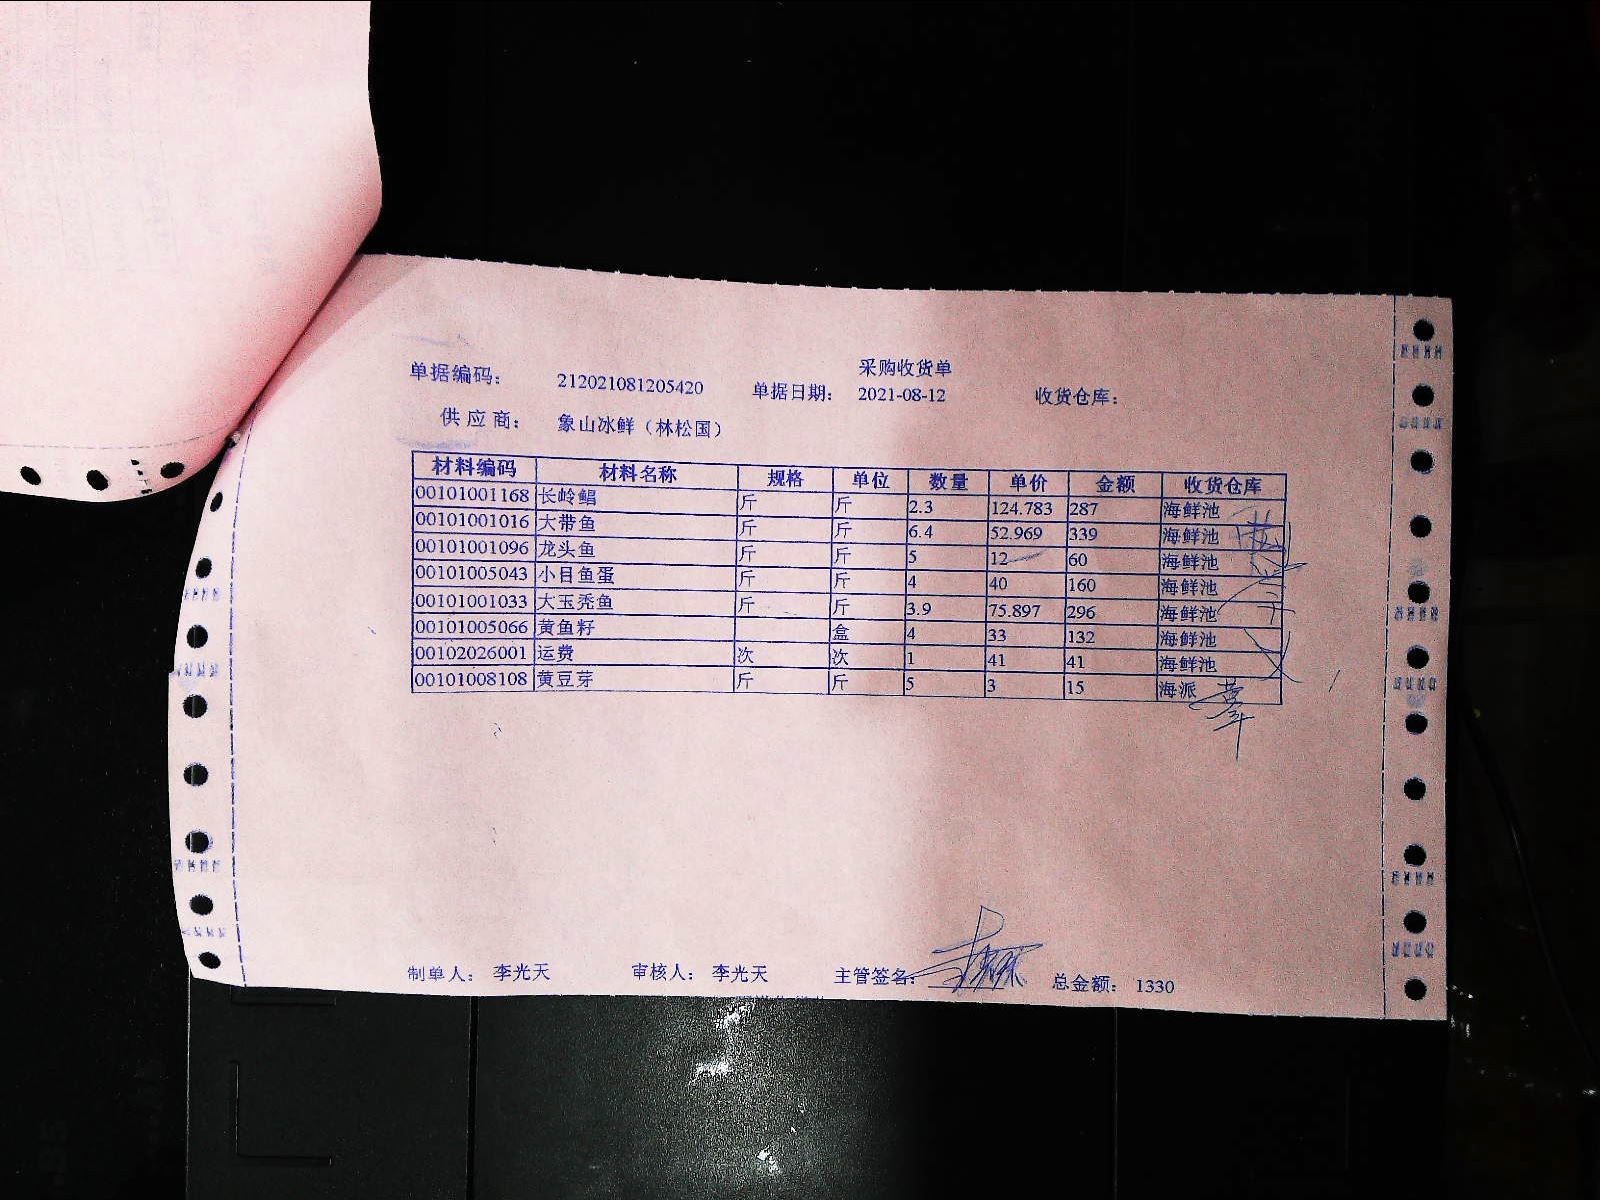 采购收货单
单据编码： 212021081205420 单据日期： 2021-08-12 收货仓库：
供应商： 象山冰鲜（林松国）
材料编码 材料名称 规格 单位 数量 单价 金额 收货仓库
00101001168 长岭鲳 斤 斤 2.3 124.783 287 海鲜池
00101001016 大带鱼 斤 斤 6.4 52.969 339 海鲜池
00101001096 龙头鱼 斤 斤 5 12 60 海鲜池
00101005043 小目鱼蛋 斤 斤 4 40 160 海鲜池
00101001033 大玉秃鱼 斤 斤 3.9 75.897 296 海鲜池
00101005066 黄鱼籽 盒 4 33 132 海鲜池
00102026001 运费 次 次 1 41 41 海鲜池
00101008108 黄豆芽 斤 斤 5 3 15 海派
制单人： 李光天 审核人： 李光天 主管签名： 总金额： 1330